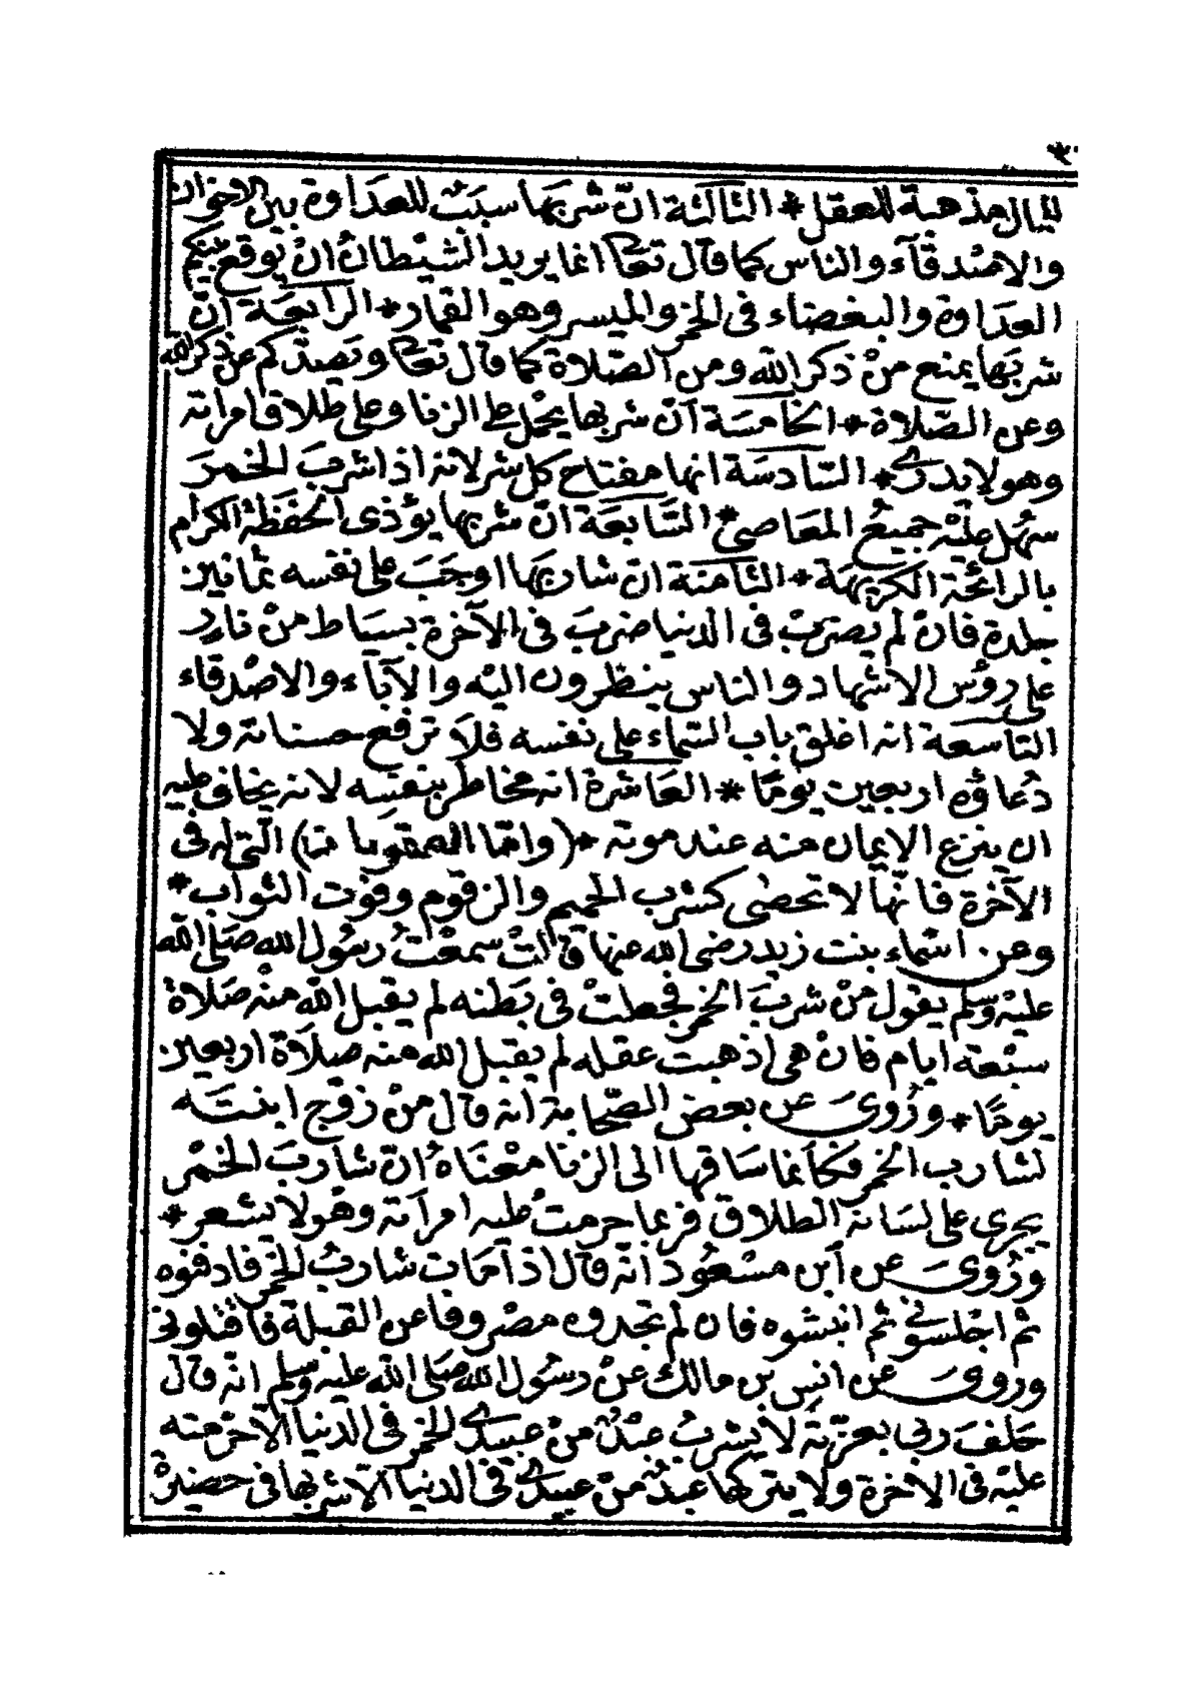 للمال مذهبة للعقل * الثالثة انّ شربها سببٌ للعداوة بين الاخوان
والاصْدقآء والناس كما قال تعا انما يريد الشيْطانُ انْ يوقع بينكم
العداوة والبغضاء فى الخمر والميسر وهو القمار * الرابعَة انّ
شربَها يمنع منْ ذكر الله ومن الصّلاة كما قال تعا ويَصدّكم عن ذكر الله
وعن الصّلاة * الخامسَة انّ شربها يحْمل على الزنا وعلى طلاق امراته
وهو لا يدرى * السّادسَة انها مفتاح كل شر لانه اذا شربَ الخمرَ
سهُل عليْه جميعُ المعَاصى * السّابعَة انّ شربها يؤذى الحفَظةَ الكرام
بالرائحة الكريهَة * الثامنة ان شاربَها اوجَبَ على نفسه ثمانين
جلدة فانْ لم يضربْ فى الدنيا ضربَ فى الآخرة بسيَاط منْ نارٍ
على روُس الاشهاد والناس ينظرون اليْه والآباء والاصْدقاء
التاسعَة انه اغلق باب السّماء على نفسه فلاَ ترفع حسناته ولا
دُعاؤه اربعين يومًا * العَاشرة انه مخاطر بنفسِه لانه يخاف عليه
ان ينزع الايمان منه عند موته * (وامّا العقوبات) الّتى له فى
الآخرة فانّها لا تحصَى كشرب الحميم والزقوم وفوت الثواب *
وعن اسْماء بنت زيد رضى الله عنها قالتْ سمعْتُ رسُول الله صَلى الله
عليْه وسلم يقول منْ شربَ الخمر فجعلتْ فى بَطنه لم يقبل الله منْه صَلاة
سبْعة ايام فانْ هى اذهبت عقله لم يقبل الله منه صلَاة اربعين
يومًا * ورُوىَ عن بعض الصّحابة انه قال منْ زوّج ابنتَه
لشارب الخمر فكاَنما سَاقها الى الزنا معْنَاهُ انّ شاربَ الخمْر
يجرى على لسَانه الطلاق فربما حرمتْ عليه امرآته وهُو لا يشعر *
ورُوىَ عن ابن مسْعُود انّه قال اذا مَات شاربُ الخمر فادفنوه
ثم احْبسونى ثم انبشوه فان لم تجدوه مصْروفا عن القبلة فاقْتلونى
وروىَ عن انس بن مالك عنْ رسُول الله صَلى الله عليه وسلم انّه قال
حَلفَ ربى بعزّته لا يشربُ عبْدٌ منْ عبيدى الخمر فى الدنيا الاّ حرّمته
عليْه فى الاخرة ولا يتركها عبْدٌ منْ عبيدى فى الدنيا الاّ شربها فى حضيرة